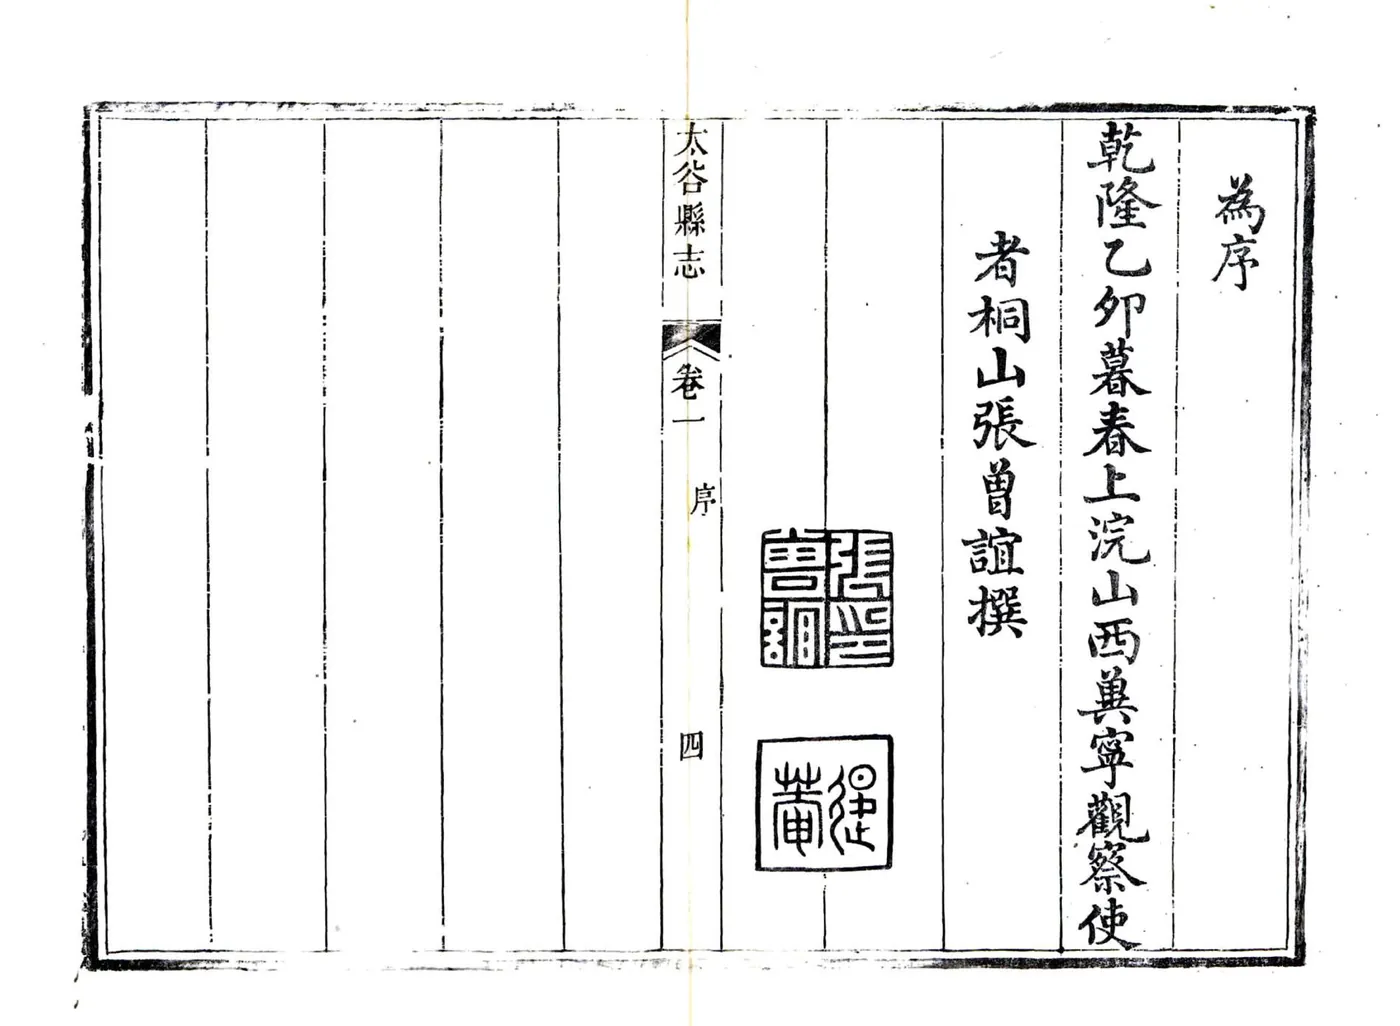 為序
乾隆乙卯暮春上浣山西冀寧觀察使
者桐山張曾誼撰
張印
曾誼
太谷縣志
卷一
序
四